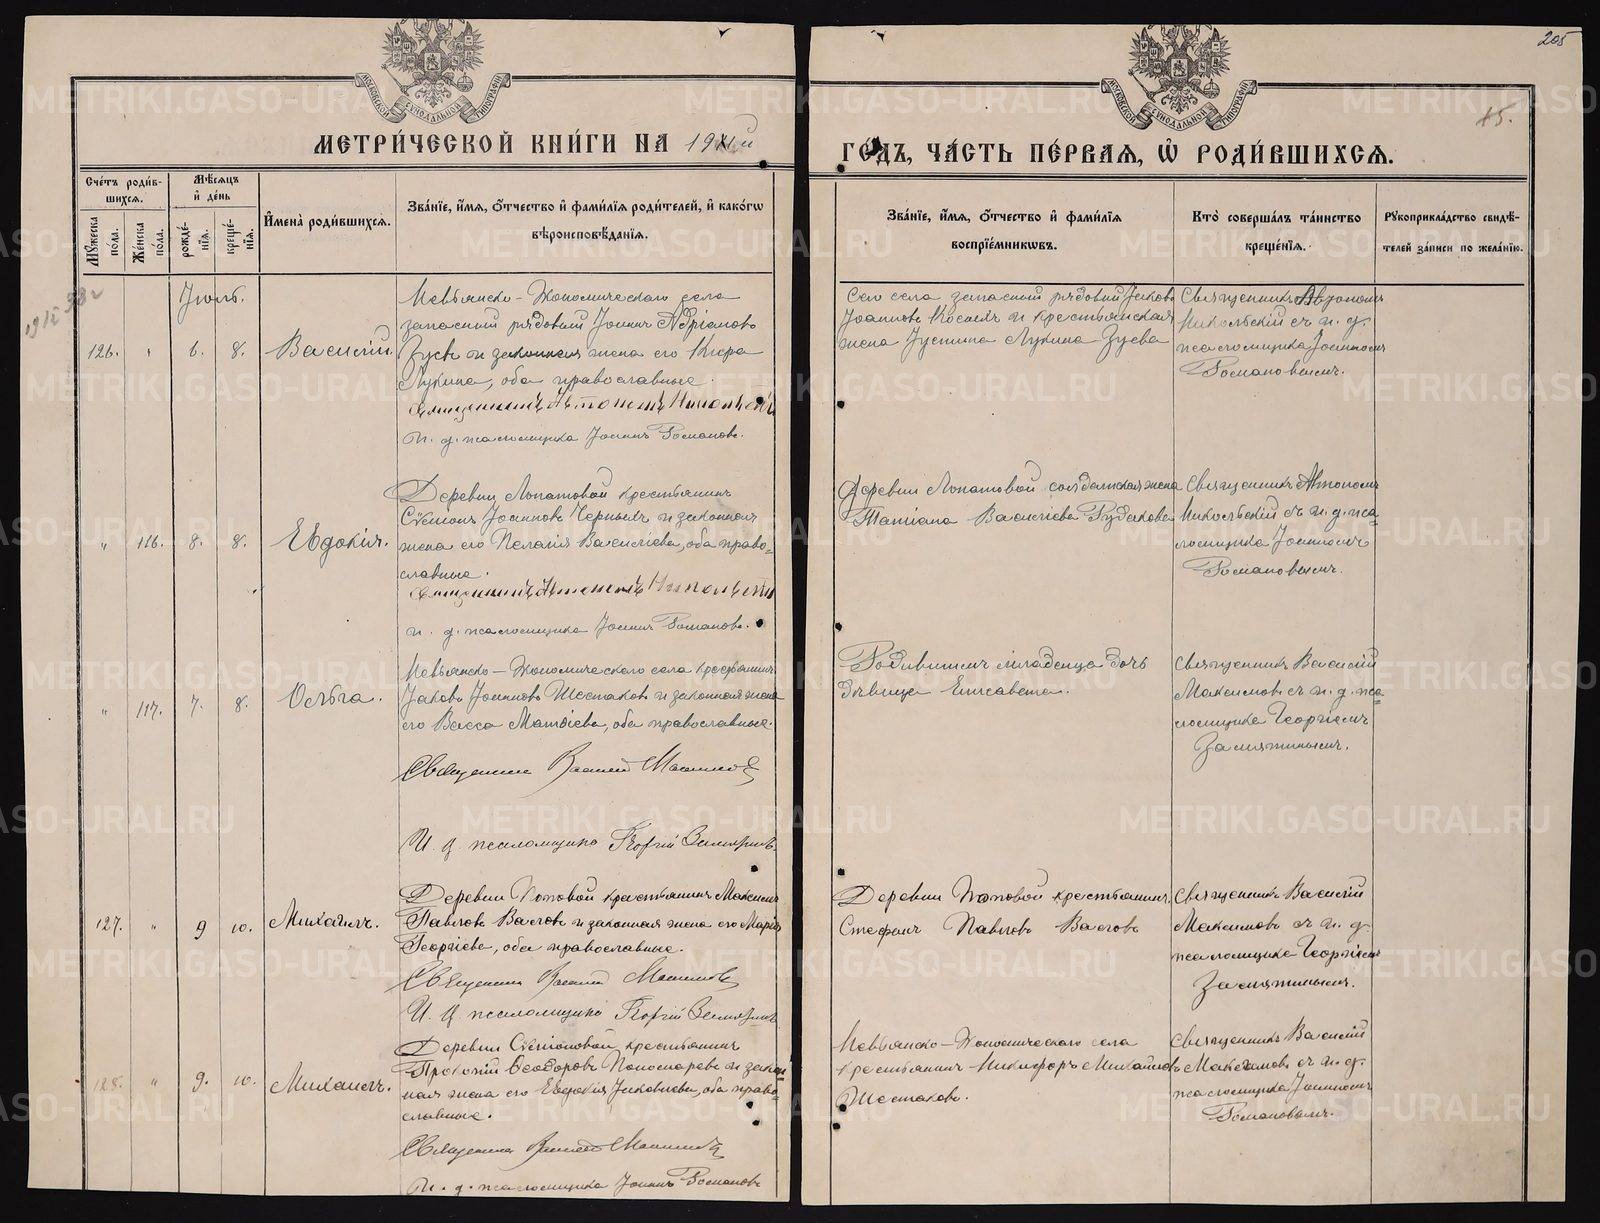 205
15.
МОСКОВСКОЙ СѴНОДАЛЬНОЙ ТИПОГРАФІИ
МОСКОВСКОЙ СѴНОДАЛЬНОЙ ТИПОГРАФІИ
МЕТРИ́ЧЕСКОЙ КНИ́ГИ НА 1911й
ГО́ДЪ, ЧА́СТЬ ПЕ́РВАЯ, Ѡ҆ РОДИ́ВШИХСѦ.
Счетъ роди́в-
шихсѧ.
Мꙋжеска по́ла.
Же́нска по́ла.
Мѣ́сѧцъ
и҆ де́нь
рожде́-
нїѧ.
креще́-
нїѧ.
И҆мена̀ роди́вшихсѧ.
Зва́нїе, и҆́мѧ, ѻ҆́тчество и҆ фами́лїѧ роди́телей, и҆ како́гѡ
вѣроисповѣ́данїѧ.
Зва́нїе, и҆́мѧ, ѻ҆́тчество и҆ фами́лїѧ
воспрїе́мникѡвъ.
Кто̀ соверша́лъ та́инство
креще́нїѧ.
Рꙋкоприкла́дство свидѣ́-
телей за́писи по жела́нїю.
Іюль.
126. " 6. 8. Василій.
Невьянско-Экономическаго села
запасный рядовой Іоаннъ Адріановъ
Зуевъ и законная жена его Кира
Лукина, оба православные.
Священникъ Автономъ Никольскій
И. д. псаломщика Іоаннъ Романовъ.
Сего села запасный рядовой Іаковъ
Іоанновъ Косыхъ и крестьянская
жена Іустина Лукина Зуева
Священникъ Автономъ
Никольскій съ и. д.
псаломщика Іоанномъ
Романовымъ.
" 116. 8. 8. Евдокія.
Деревни Лопатовой крестьянинъ
Сѵмеонъ Іоанновъ Черныхъ и законная
жена его Пелагія Василіева, оба право-
славные.
Священникъ Автономъ Никольскій
и. д. псаломщика Іоаннъ Романовъ.
Деревни Лопатовой солдатская жена
Татіана Василіева Рудакова
Священникъ Автономъ
Никольскій съ и. д. пса-
ломщика Іоанномъ
Романовымъ.
" 117. 7. 8. Ольга.
Невьянско-Экономическаго села крестьянинъ
Іаковъ Іоанновъ Шестаковъ и законная жена
его Васса Матѳіева, оба православные.
Священникъ Василій Максимовъ
И. д. псаломщика Георгій Замятинъ.
Родившагося младенца дочь
дѣвица Елисавета.
Священникъ Василій
Максимовъ съ и. д. пса-
ломщика Георгіемъ
Замятинымъ.
127. " 9 10. Михаилъ.
Деревни Поповой крестьянинъ Максимъ
Павловъ Валовъ и законная жена его Марія
Георгіева, оба православные.
Священникъ Василій Максимовъ
И. д. псаломщика Георгій Замятинъ
Деревни Поповой крестьянинъ
Стефанъ Павловъ Валовъ
Священникъ Василій
Максимовъ съ и. д.
псаломщика Георгіемъ
Замятинымъ.
128. " 9. 10. Михаилъ.
Деревни Сѵмоновой крестьянинъ
Прокопій Ѳеодоровъ Пономаревъ и закон-
ная жена его Евдокія Іаковлева, оба право-
славные.
Священникъ Василій Максимовъ
И. д. псаломщика Іоаннъ Романовъ
Невьянско-Экономическаго села
крестьянинъ Никифоръ Михайловъ
Шестаковъ.
Священникъ Василій
Максимовъ съ и. д.
псаломщика Іоанномъ
Романовымъ.
METRIKI.GASO-URAL.RU